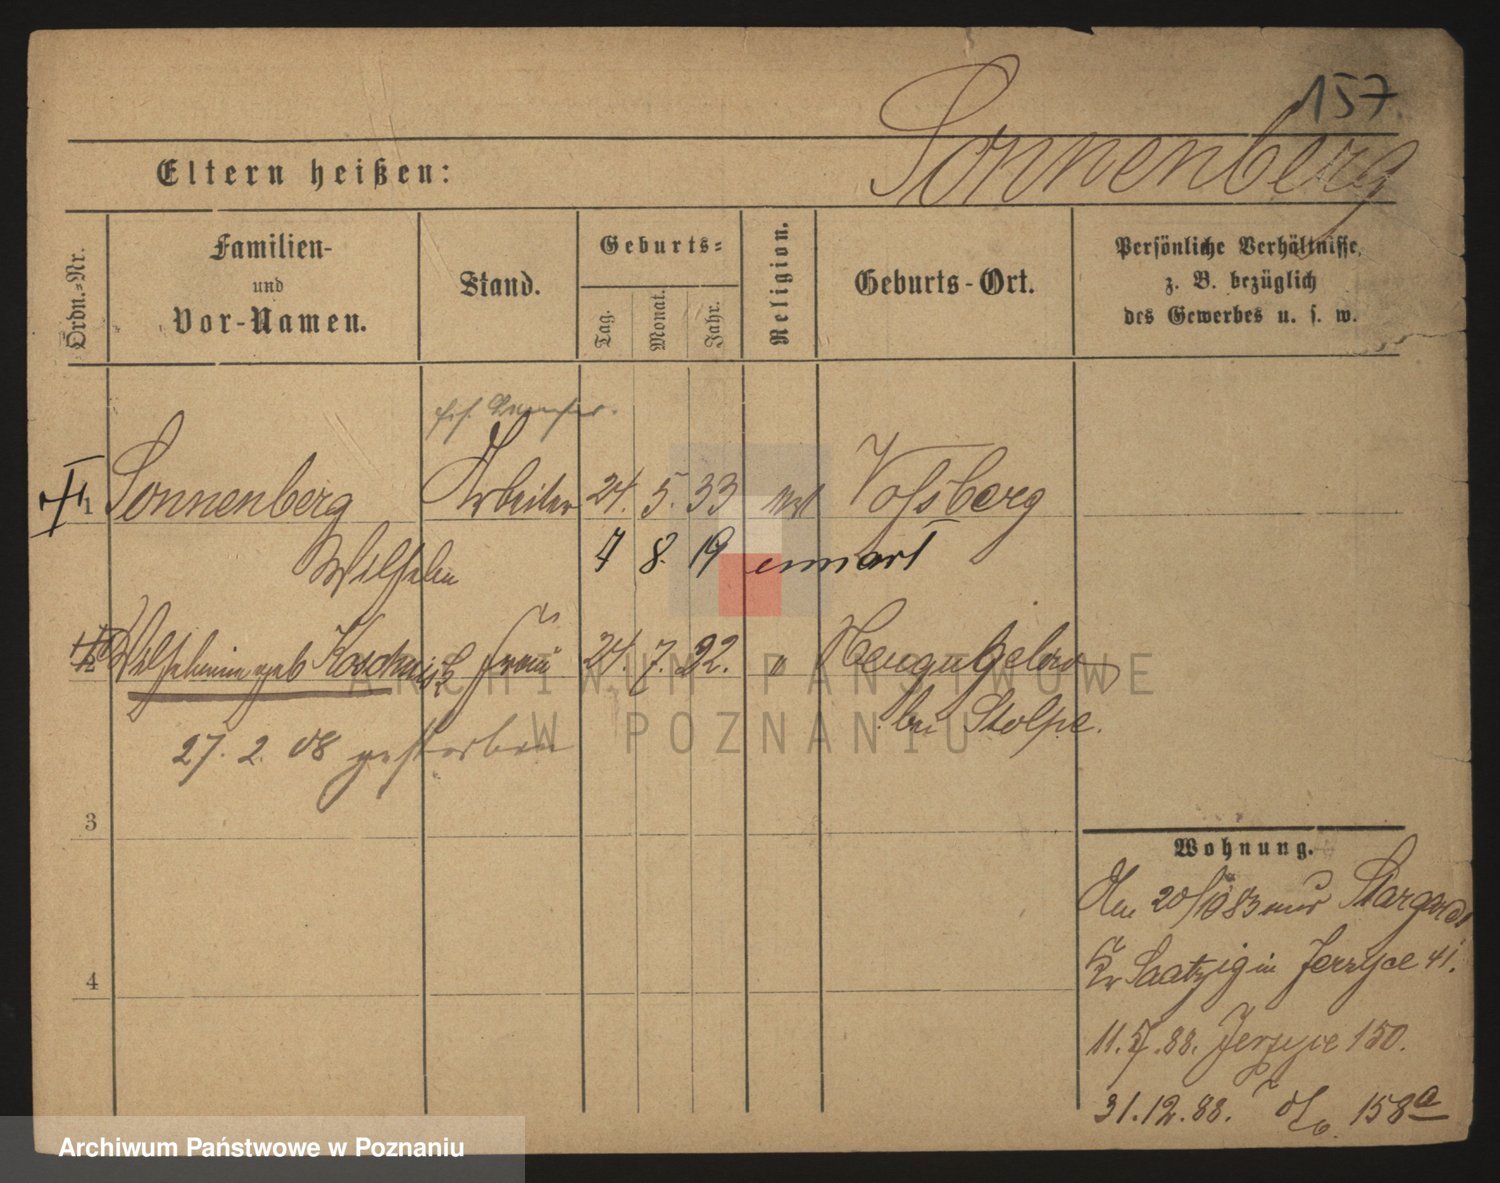 157
Sonnenberg
Eltern heißen:
Ordn.-Nr.
Familien-
und
Vor-Namen.
Stand.
Geburts-
Tag.
Monat.
Jahr.
Religion.
Geburts-Ort.
Persönliche Verhältnisse,
z. B. bezüglich
des Gewerbes u. s. w.
1 Sonnenberg Arbeiter 24. 5. 33 Voßberg
Wilhelm 7 8. 19
2 Wilhelmine geb Frau 24. 7. 22. "
bei Stolpe.
27. 2. 08 gestorben
3
4
Wohnung.
Am 20/10 83 aus Stargard
Kr Saatzig in Jerzyce 41.
11. 5. 88. Jerzyce 150.
31. 12. 88. 158a
ARCHIWUM PAŃSTWOWE
W POZNANIU
Archiwum Państwowe w Poznaniu